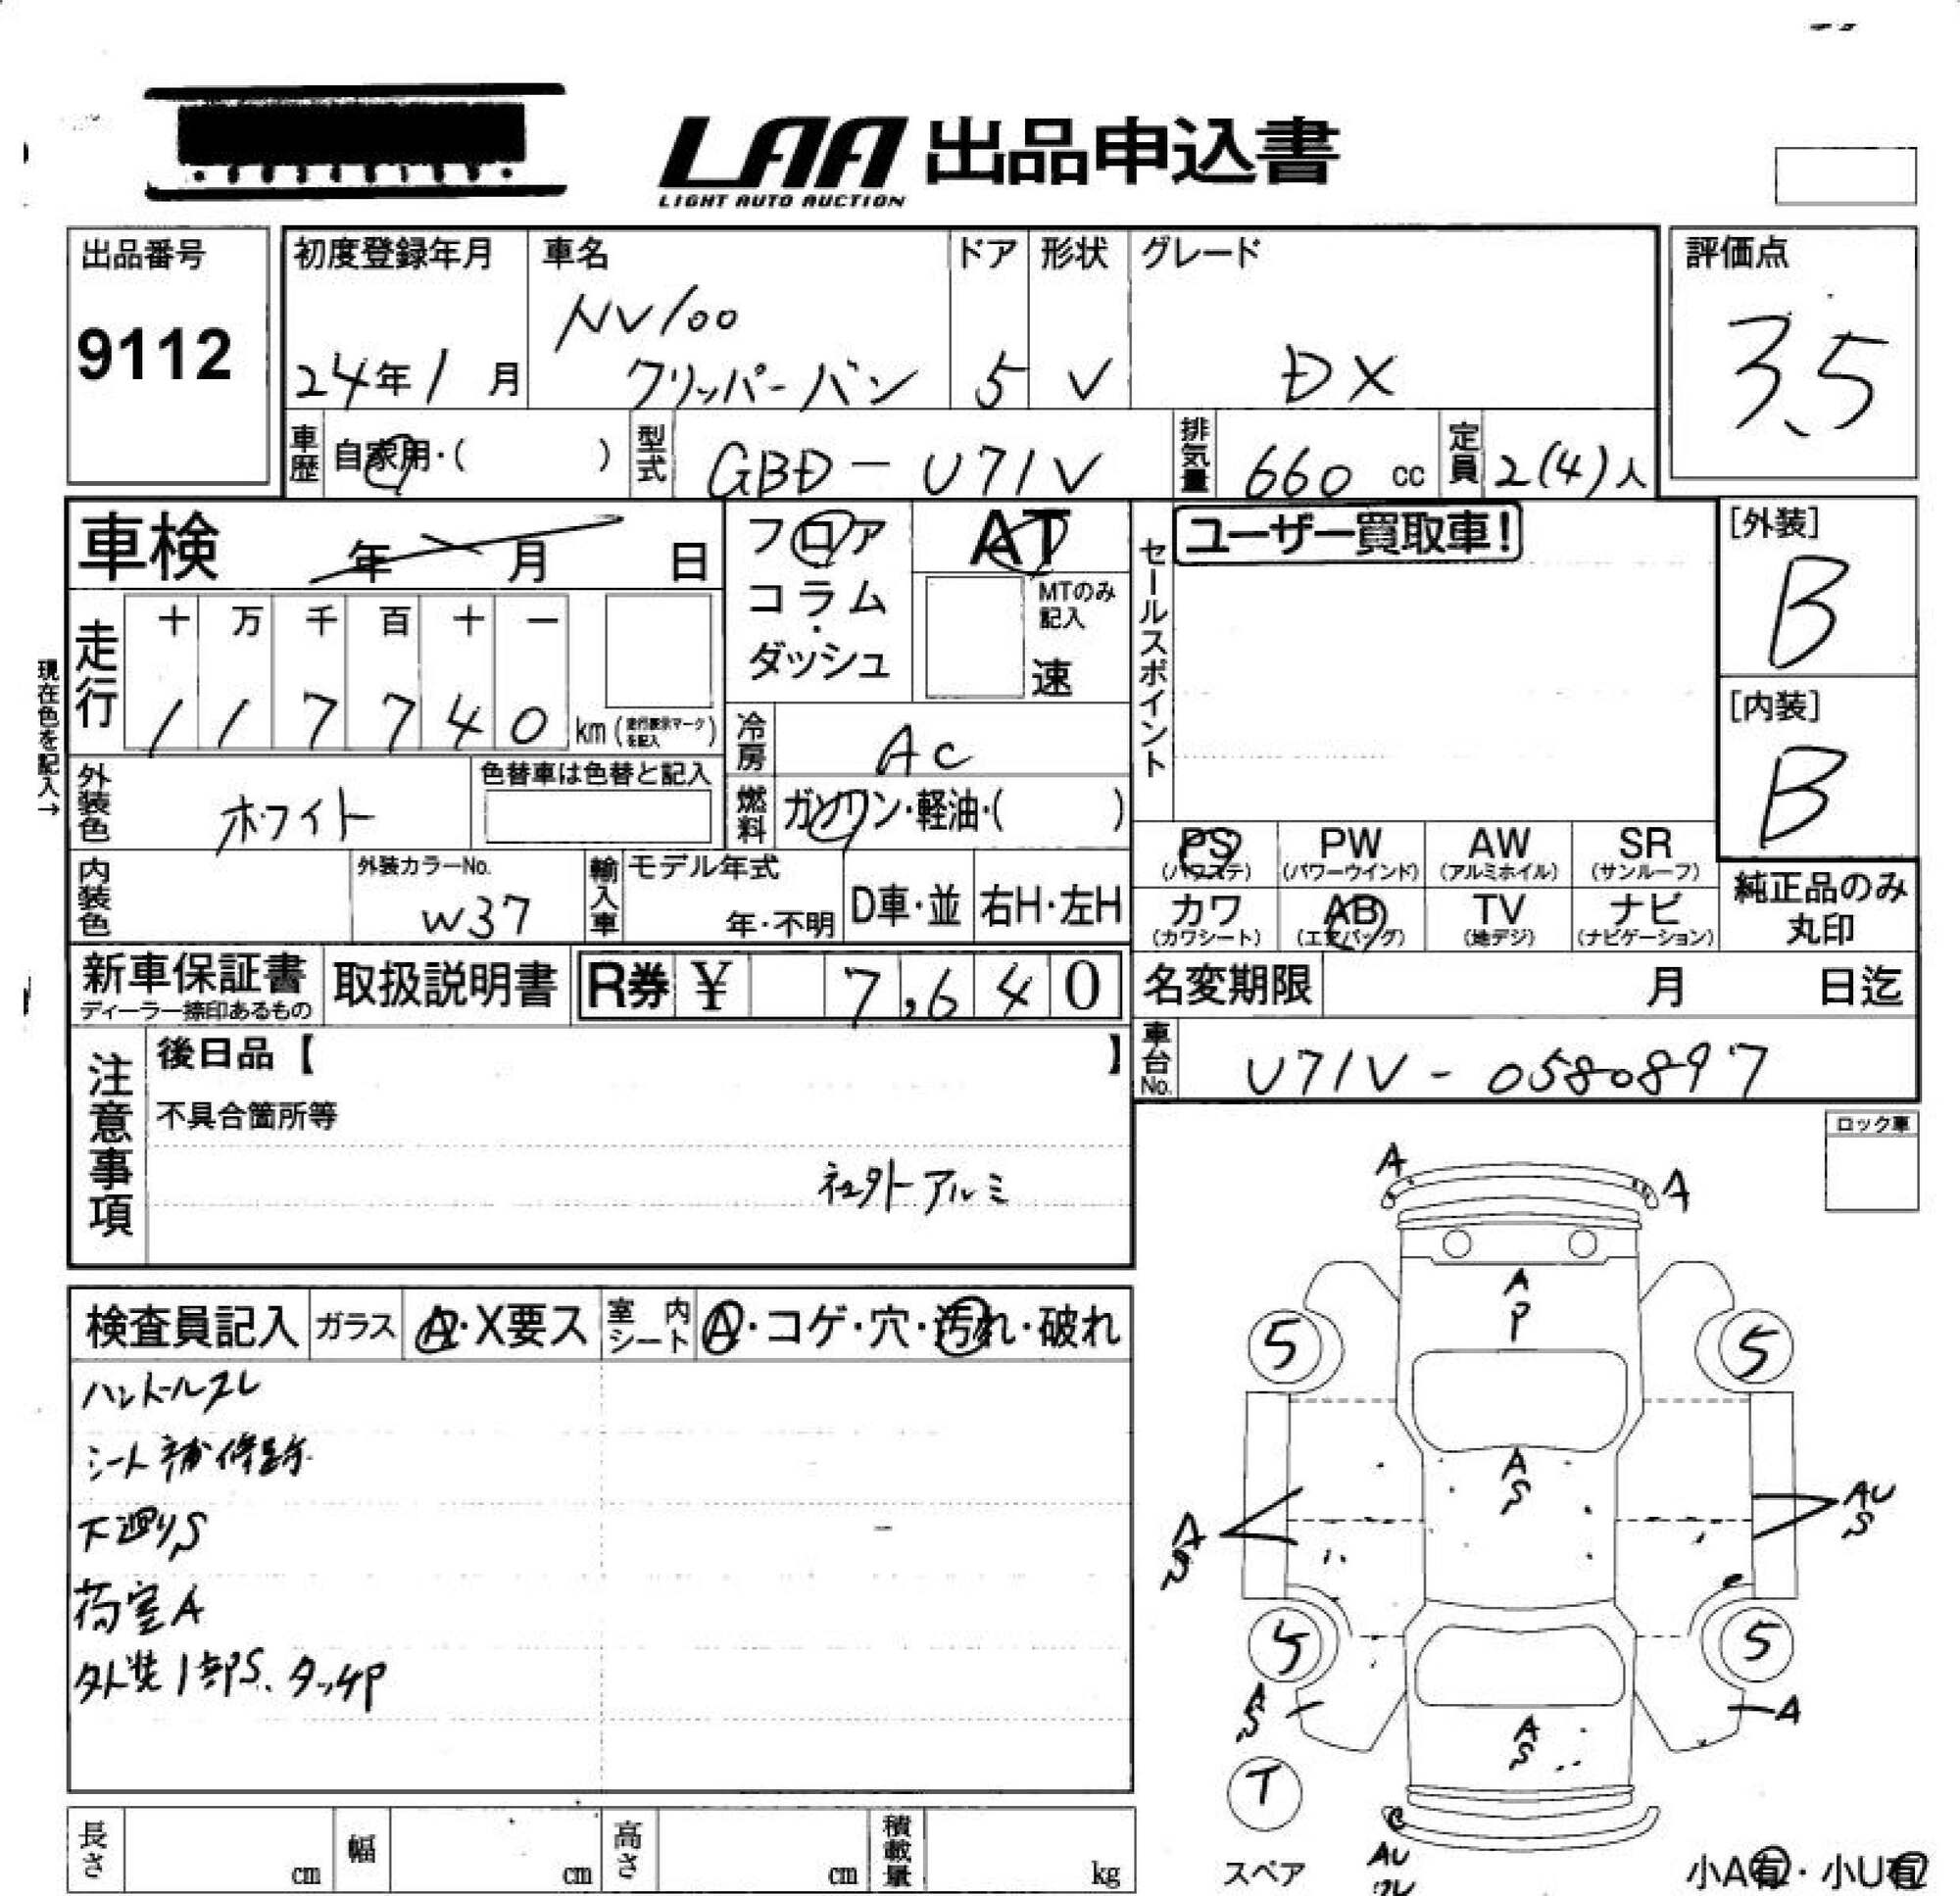 LAA 出品申込書
LIGHT AUTO AUCTION
出品番号
9112
初度登録年月
24年1月
車名
NV100
クリッパーバン
ドア
5
形状
V
グレード
DX
評価点
3.5
車歴 自家用・( )
型式 GBD-U71V
排気量 660 cc
定員 2(4)人
車検 年 月 日
フロア
コラム
・
ダッシュ
AT
MTのみ
記入
速
セールスポイント
ユーザー買取車!
[外装]
B
[内装]
B
現在色を記入→
走行
十 万 千 百 十 一
1 1 7 7 4 0 km (走行表示マークを記入)
冷房 AC
外装色 ホワイト
色替車は色替と記入
燃料 ガソリン・軽油・( )
PS
(パワステ)
PW
(パワーウインド)
AW
(アルミホイル)
SR
(サンルーフ)
カワ
(カワシート)
AB
(エアバッグ)
TV
(地デジ)
ナビ
(ナビゲーション)
純正品のみ
丸印
内装色
外装カラーNo.
W37
輸入車
モデル年式
年・不明
D車・並
右H・左H
新車保証書
ディーラー捺印あるもの
取扱説明書
R券 ¥ 7,640
名変期限 月 日迄
車台No. U71V-0580897
注意事項
後日品【 】
不具合箇所等
社外アルミ
ロック車
検査員記入
ガラス
A・X要ス
室内シート
A・コゲ・穴・汚れ・破れ
ハンドルスレ
シート補修跡
下廻りS
荷室A
外装1部S、タッチP
A
A
A
P
5
5
A
S
A
S
AU
S
5
5
A
S
A
A
S
T
スペア
C
AU
スレ
小A有・小U有
長さ cm
幅 cm
高さ cm
積載量 kg